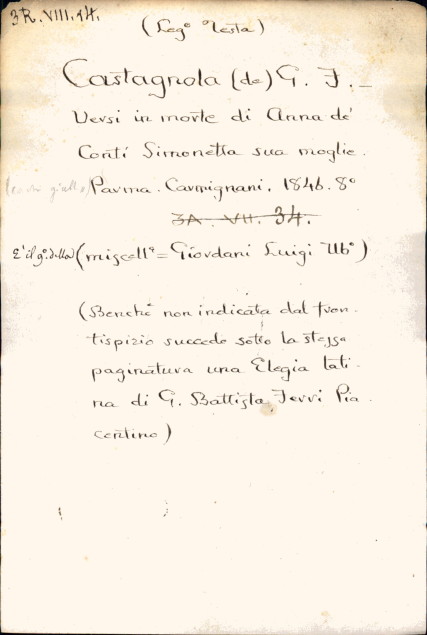 3R.VIII.14.
(Leg° Testa)
Castagnola (de) G. F. –
Versi in morte di Anna de'
Conti Simonetta sua moglie.
Parma. Carmignani. 1846. 8°
3A. VII. 34.
E' il 9° della (miscell° = Giordani Luigi Ub°)
(Benchè non indicata dal fron-
tispizio succede sotto la stessa
paginatura una Elegia lati-
na di G. Battista Ferri Pia-
centino)